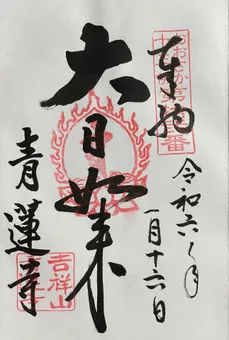 奉拝
令和六年
一月十六日
大日如来
青蓮寺
吉祥山